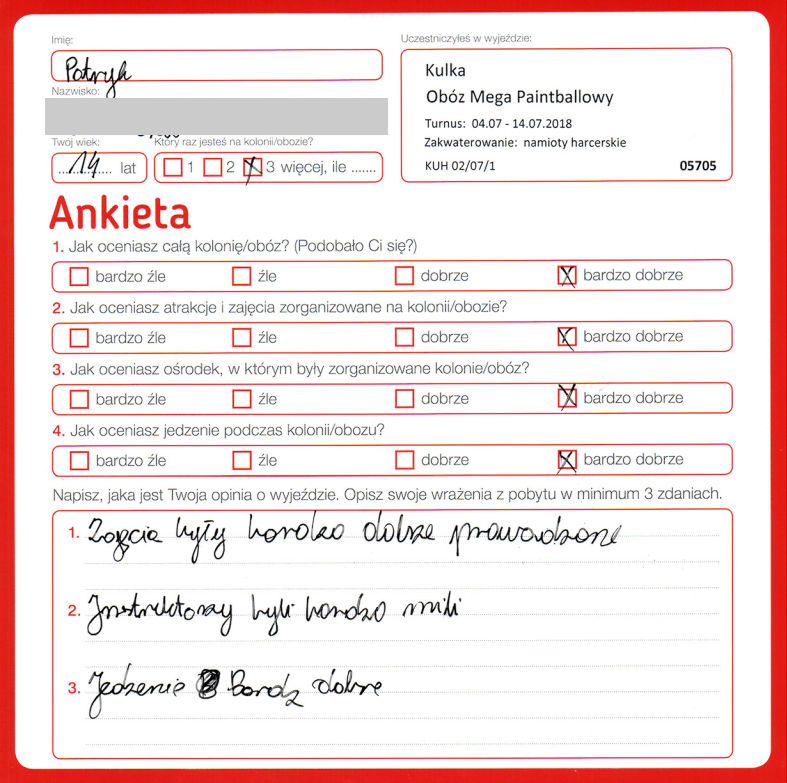 Imię:
Patryk
Nazwisko:
Twój wiek:
14 lat
Który raz jesteś na kolonii/obozie?
1 2 3 więcej, ile .......
Uczestniczyłeś w wyjeździe:
Kulka
Obóz Mega Paintballowy
Turnus: 04.07 - 14.07.2018
Zakwaterowanie: namioty harcerskie
KUH 02/07/1 05705
Ankieta
1. Jak oceniasz całą kolonię/obóz? (Podobało Ci się?)
bardzo źle źle dobrze bardzo dobrze
2. Jak oceniasz atrakcje i zajęcia zorganizowane na kolonii/obozie?
bardzo źle źle dobrze bardzo dobrze
3. Jak oceniasz ośrodek, w którym były zorganizowane kolonie/obóz?
bardzo źle źle dobrze bardzo dobrze
4. Jak oceniasz jedzenie podczas kolonii/obozu?
bardzo źle źle dobrze bardzo dobrze
Napisz, jaka jest Twoja opinia o wyjeździe. Opisz swoje wrażenia z pobytu w minimum 3 zdaniach.
1. Zajęcia były bardzo dobrze prowadzone
2. Instruktorzy byli bardzo mili
3. Jedzenie Bardz dobre